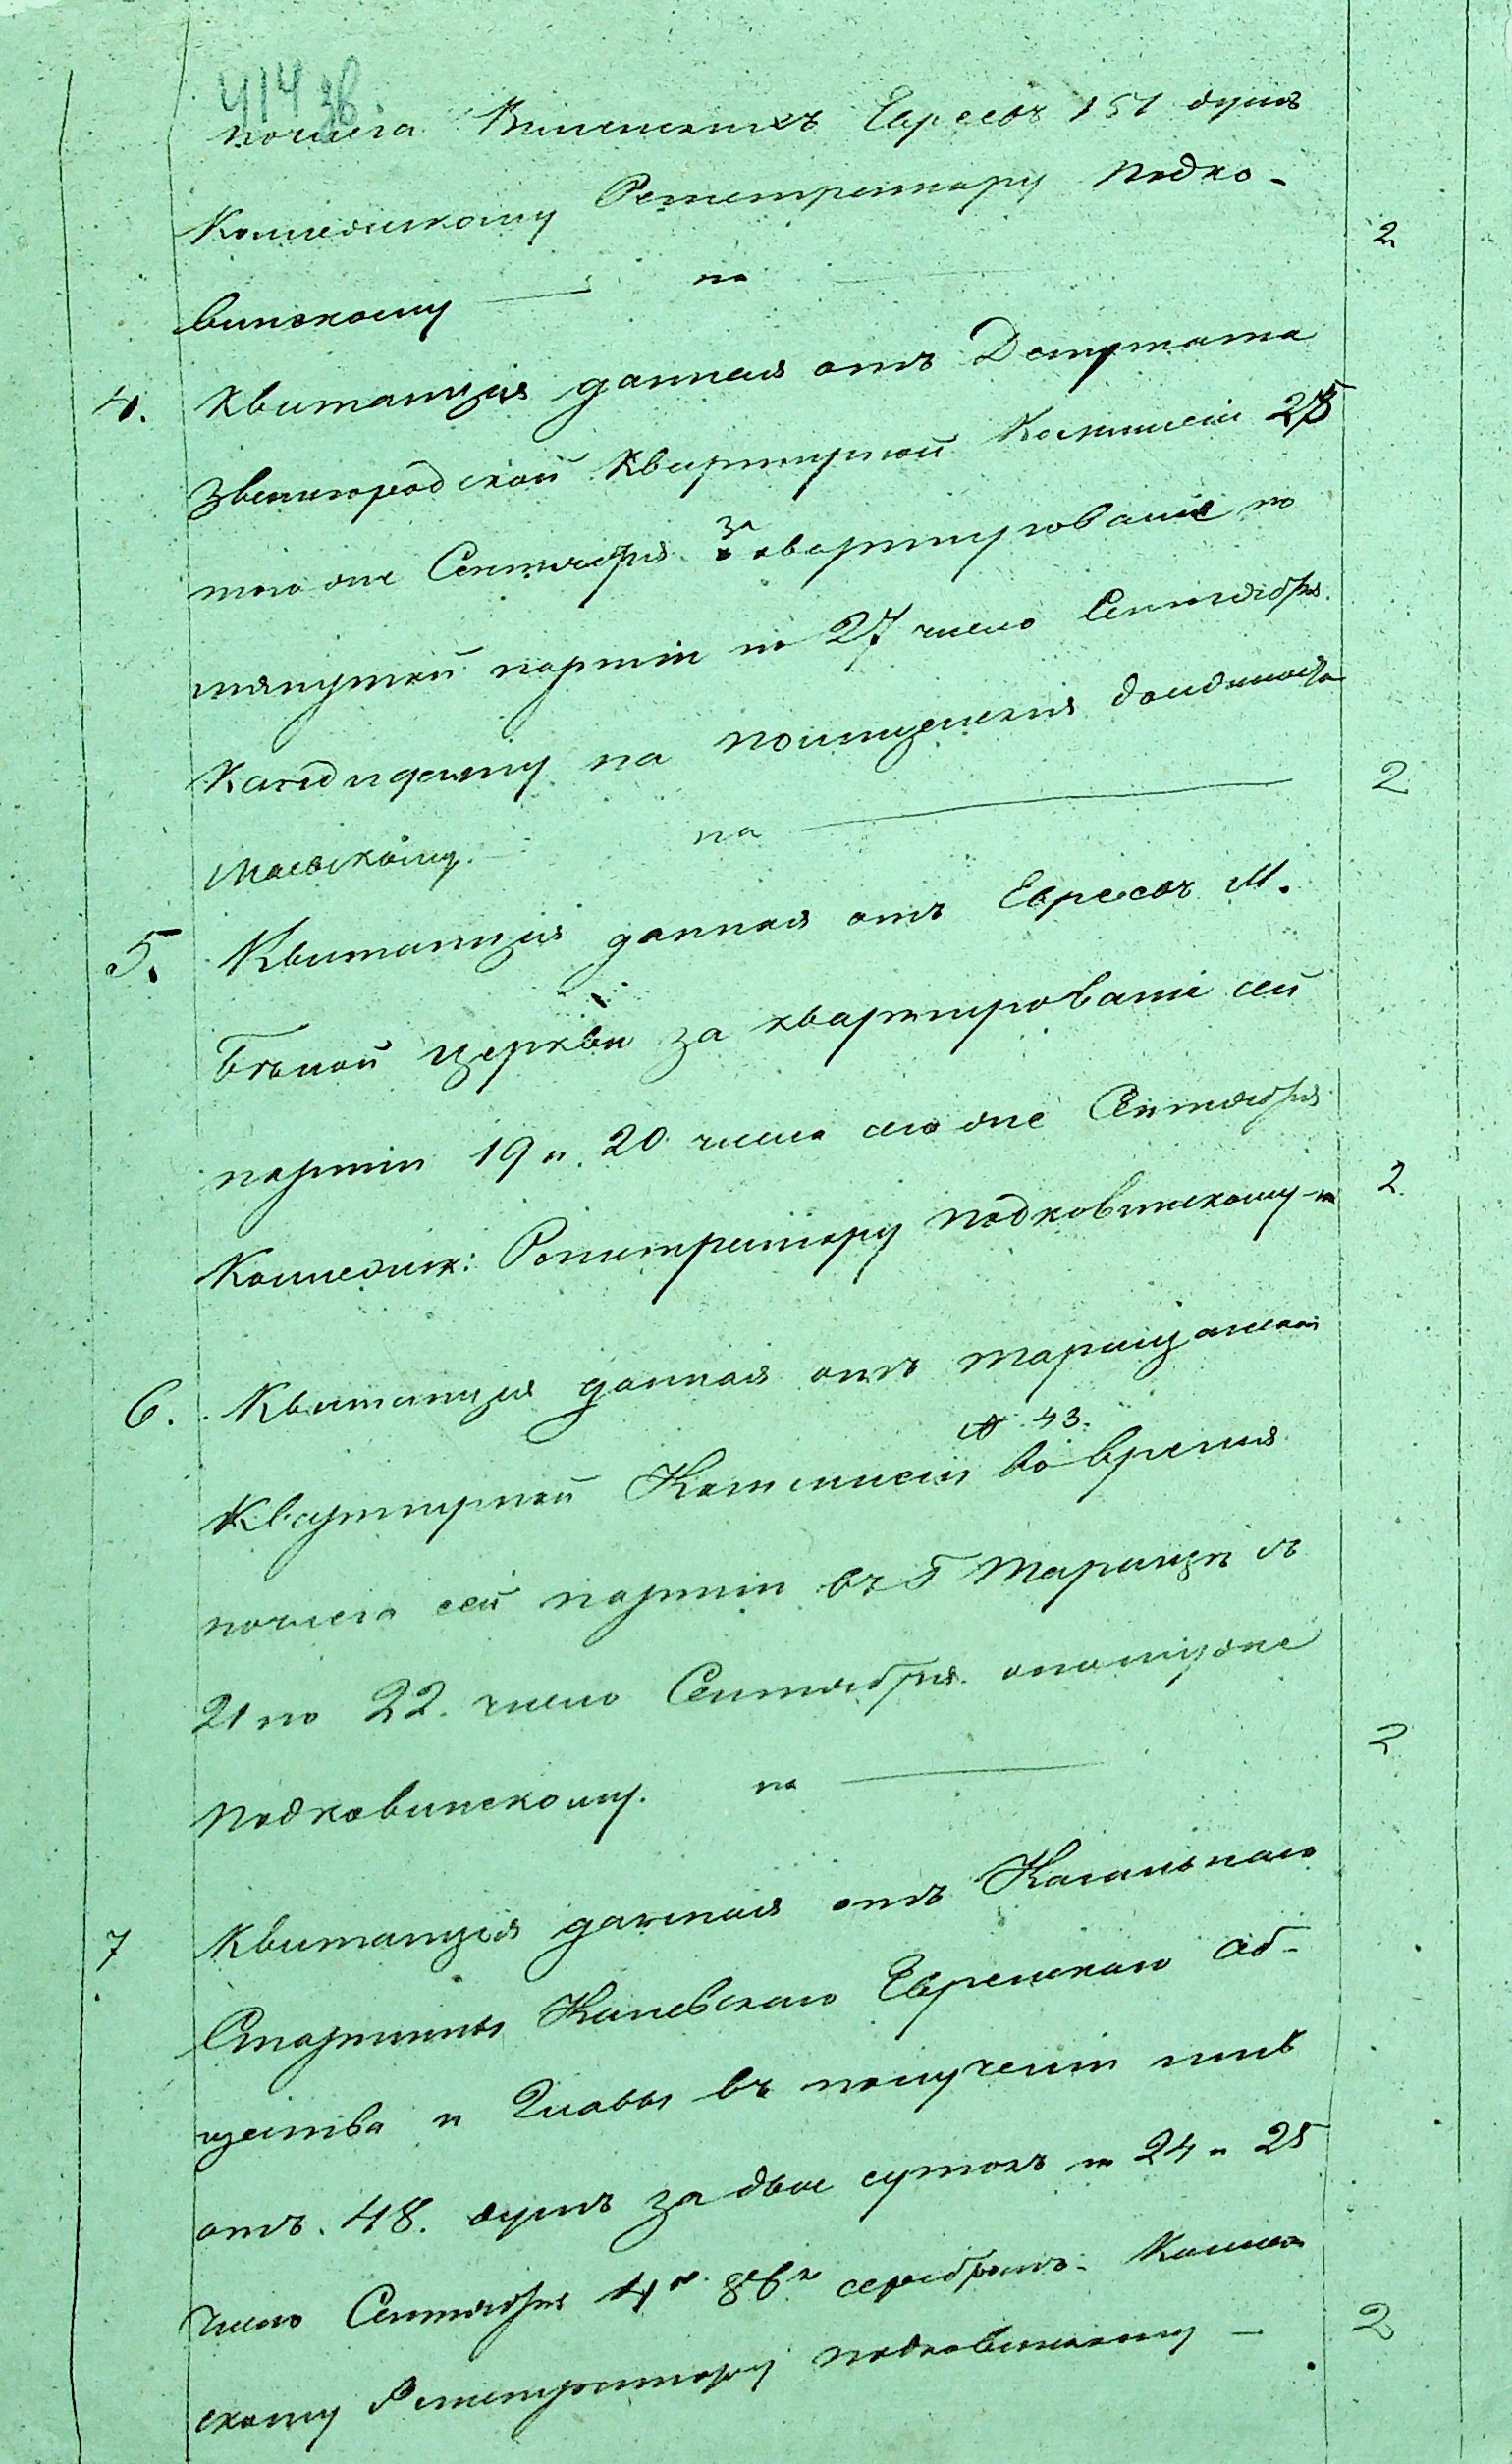 414 зв.
ночлега Виленскихъ Евреевъ 151 душъ
Коллежскому Регистратору Подко-
винскому — на — 2
4. Квитанція данная отъ Депутата
Звенигородской Квартирной Коммисіи 25
того же Сентября за квартированіе по
мянутой партіи по 27 число Сентября
Кандидату на полицейскія должности
Маевскому. на — 2
5. Квитанція данная отъ Евреевъ М.
Бѣлой церкви за квартированіе сей
партіи 19 и 20 числа сего же Сентября
Коллежск: Регистратору Подковинскому на 2.
6. Квитанція данная отъ Таращанской
Квартирной Коммисіи № 43. во время
ночлега сей партіи въ Г Таращѣ съ
21 по 22. число Сентября ономуже
Подковинскому. на — 2
7 Квитанція данная отъ Кагальнаго
Старшины Каневскаго Еврейскаго Об-
щества и Главы въ полученіи имъ
отъ 48. душъ за двое сутокъ 24 и 25
число Сентября серебромъ. Коллеж
скому Регистратору Подковинскому — 2